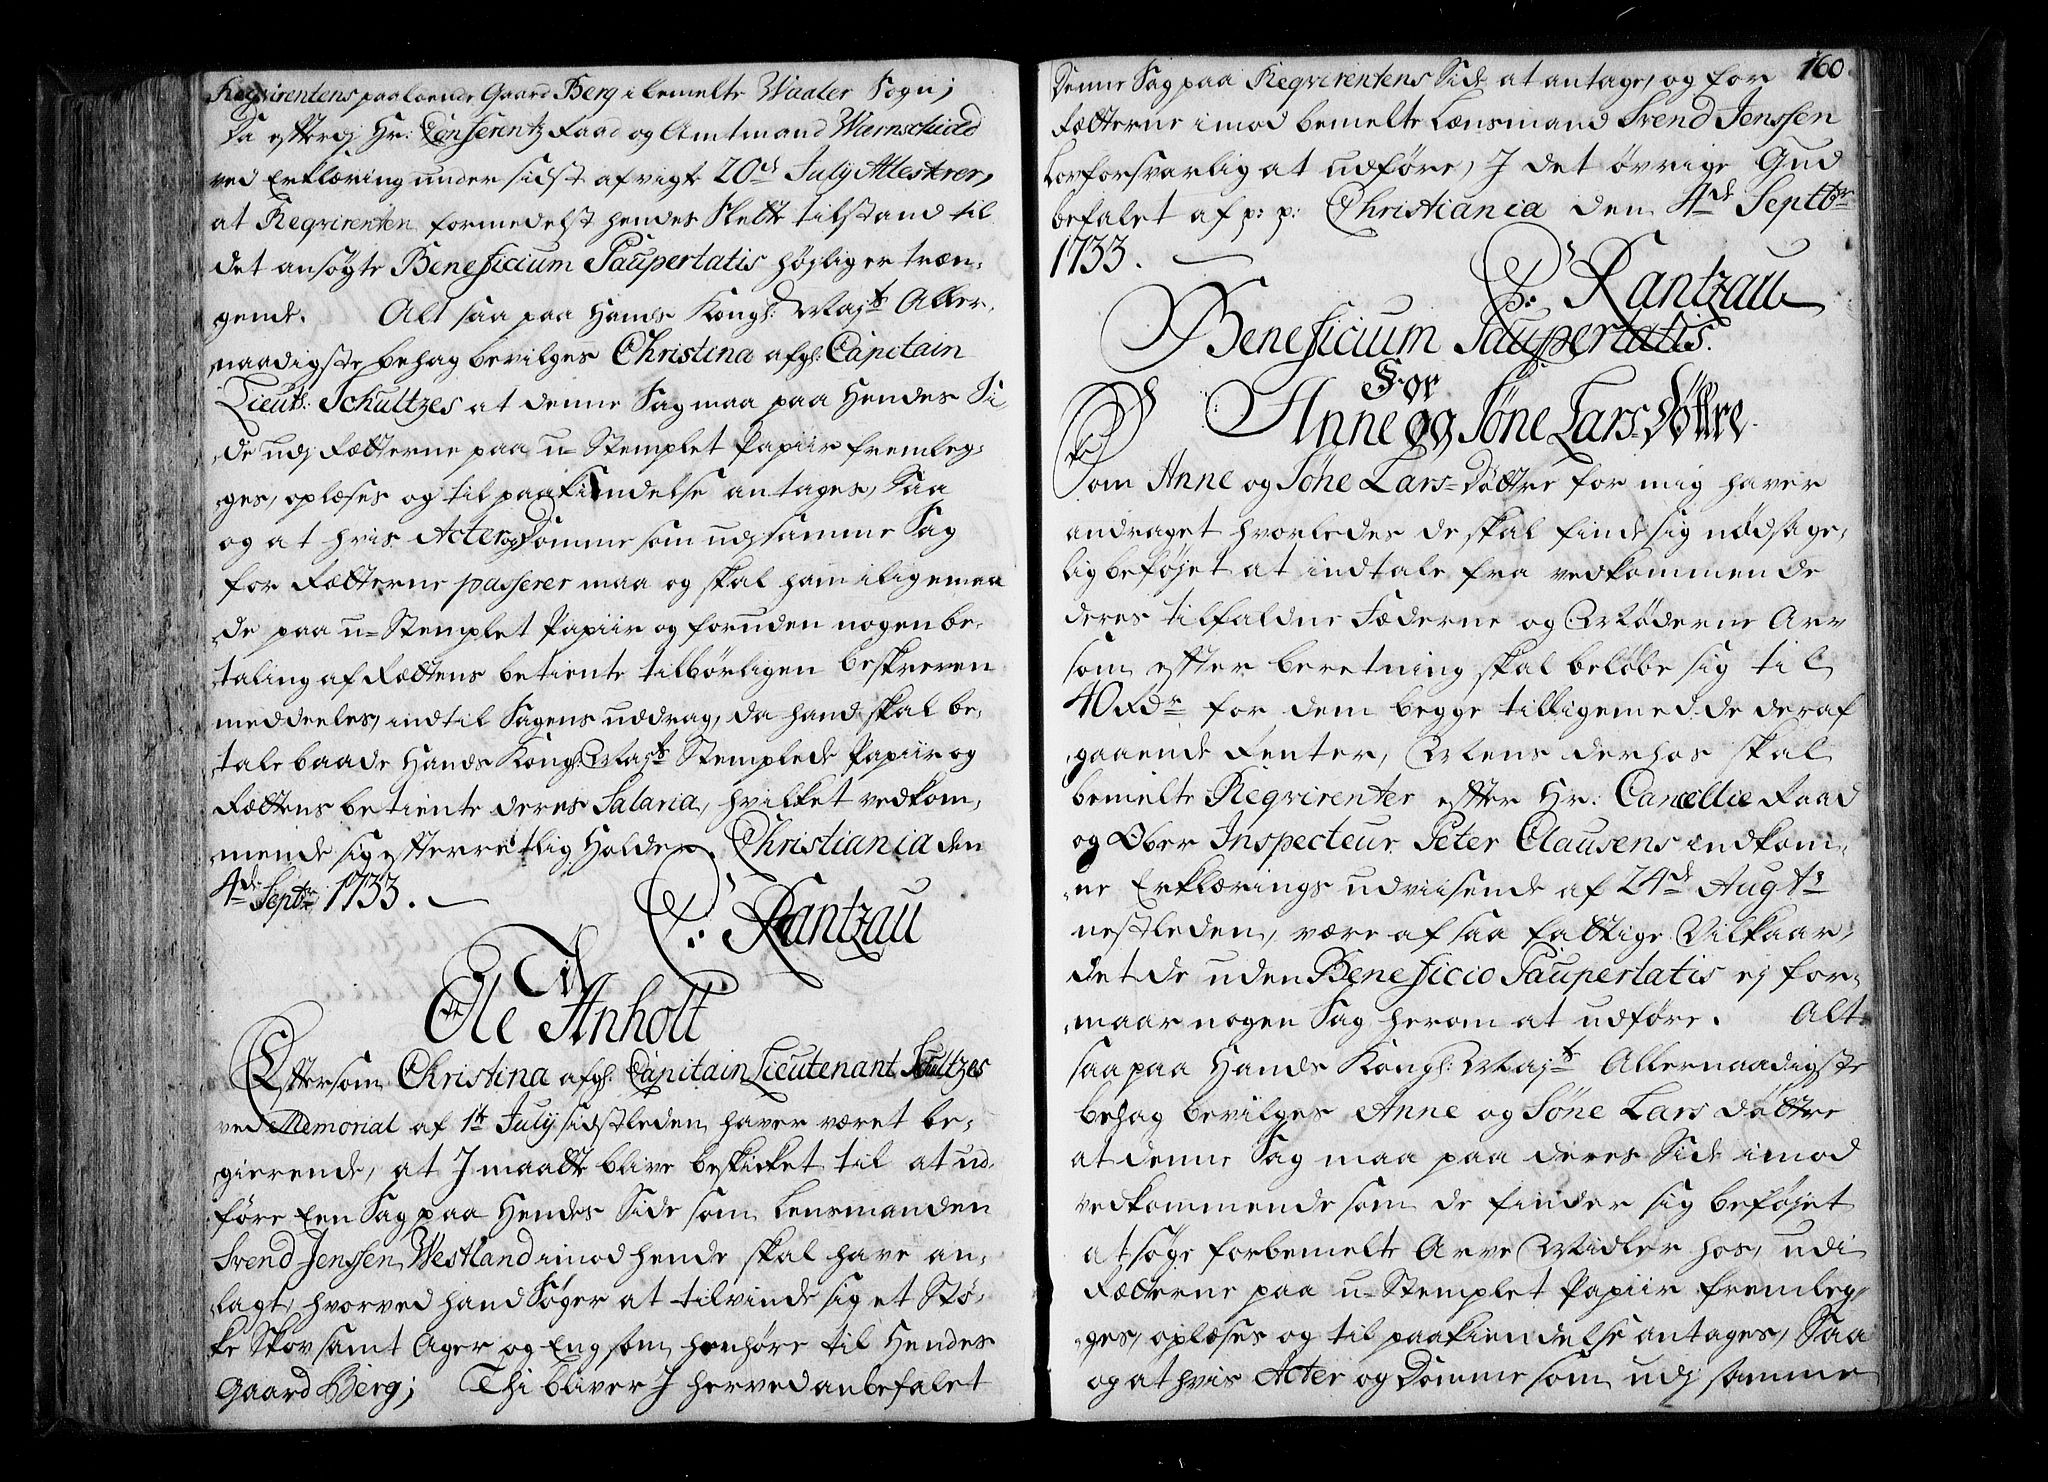 Reqvirentens paaboende Gaard Berg i bemelte Waaler Sogn;
Da efterdj Hr: Conferentz Raad og Amtmand Wernschiold
ved Erklæring under sidst afvigt 20de July Attesterer,
at Reqvirenten formedelst hendes Slette tilstand til
det ansøgte Beneficium Paupertatis højlig er træn-
gende. Alt saa paa Hands Kongl: Mayts Aller-
naadigste behag bevilges Christina afgl: Capitain
Lieut: Schultzes at denne Sag maa paa Hendes Si-
de udj Rætterne paa u-Stemplet Papiir fremleg-
ges, oplæses og til paakiendelse antages, Saa
og at hvis Acter og Domme som udj samme Sag
for Rætterne passerer maa og skal ham iligemaa-
de paa u-Stemplet Papiir og foruden nogen be-
taling af Rættens betiente tilbørligen beskreven
meddeeles, indtil Sagens uddrag, da hand skal be-
tale baade Hands Kongl: Mayts Stemplede Papiir og
Rættens betiente deres Salaria, hvilket vedkom-
mende sig efterretlig Holder. Christiania den
4de Septbr 1733.
C: Rantzau
Til
Ole Anholt
Eftersom Christina afgl: Capitain Lieutenant Schultzes
ved Memorial af 1st July sidstleden haver været be-
gierende, at J maatte blive beskicket til at ud-
føre Een Sag paa Hendes Side som Lensmanden
Svend Jenssen Westland imod hende skal have an-
lagt, hvorved hand Søger at tilvinde sig et Stø-
ke Skov samt Ager og Eng som henhøre til Hendes
Gaard Berg; Thi bliver J herved anbefalet
160.
Denne Sag paa Reqvirentens Side at antage, og for
Rætterne imod bemelte Lænsmand Svend Jenssen
Lovforsvarlig at udføre, J det øvrige Gud
befalet af p: p: Christiania den 4de Septbr
1733.
C: Rantzau
Beneficium Paupertatis
For
Anne og Søne Lars-Døttre.
Som Anne og Søne Lars-Døttre for mig haver
andraget hvorledes de skal finde sig nødsage-
lig beføjet at indtale fra vedkommende
deres tilfaldne Fæderne og Møderne Arv
som efter beretning skal beløbe sig til
40 Rdr for dem begge tilligemed de deraf
gaaende Renter, Mens derhos skal
bemelte Reqvirenter efter Hr: Cancellie Raad
og Ober Inspecteur Peter Clausens indkom-
ne Erklærings udviisende af 24de Augts
nestleden, være af saa fattige Vilkaar,
det de uden Beneficio Paupertatis ej for-
maar nogen Sag herom at udføre. Alt-
saa paa Hands Kongl: Mayts Allernaadigste
behag bevilges Anne og Søne Lars Døttre
at denne Sag maa paa deres Side imod
vedkommende som de finder sig beføjet
at søge forbemelte Arve Midler hos, udi
Rætterne paa u-Stemplet Papiir fremleg-
ges, oplæses og til paakiendelse antages, Saa
og at hvis Acter og Domme som udj samme